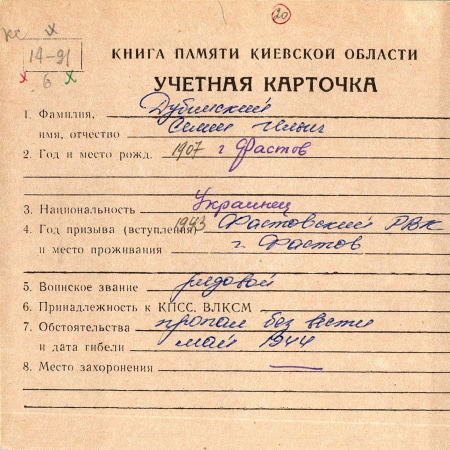 20
кс х
14-91
х 6 х
КНИГА ПАМЯТИ КИЕВСКОЙ ОБЛАСТИ
УЧЕТНАЯ КАРТОЧКА
1. Фамилия, Дубинский
имя, отчество Семен Ильич
2. Год и место рожд. 1907 г Фастов
3. Национальность Украинец
4. Год призыва (вступления) 1943 Фастовский РВК
и место проживания г. Фастов
5. Воинское звание рядовой
6. Принадлежность к КПСС, ВЛКСМ
7. Обстоятельства пропал без вести
и дата гибели май 1944
8. Место захоронения —